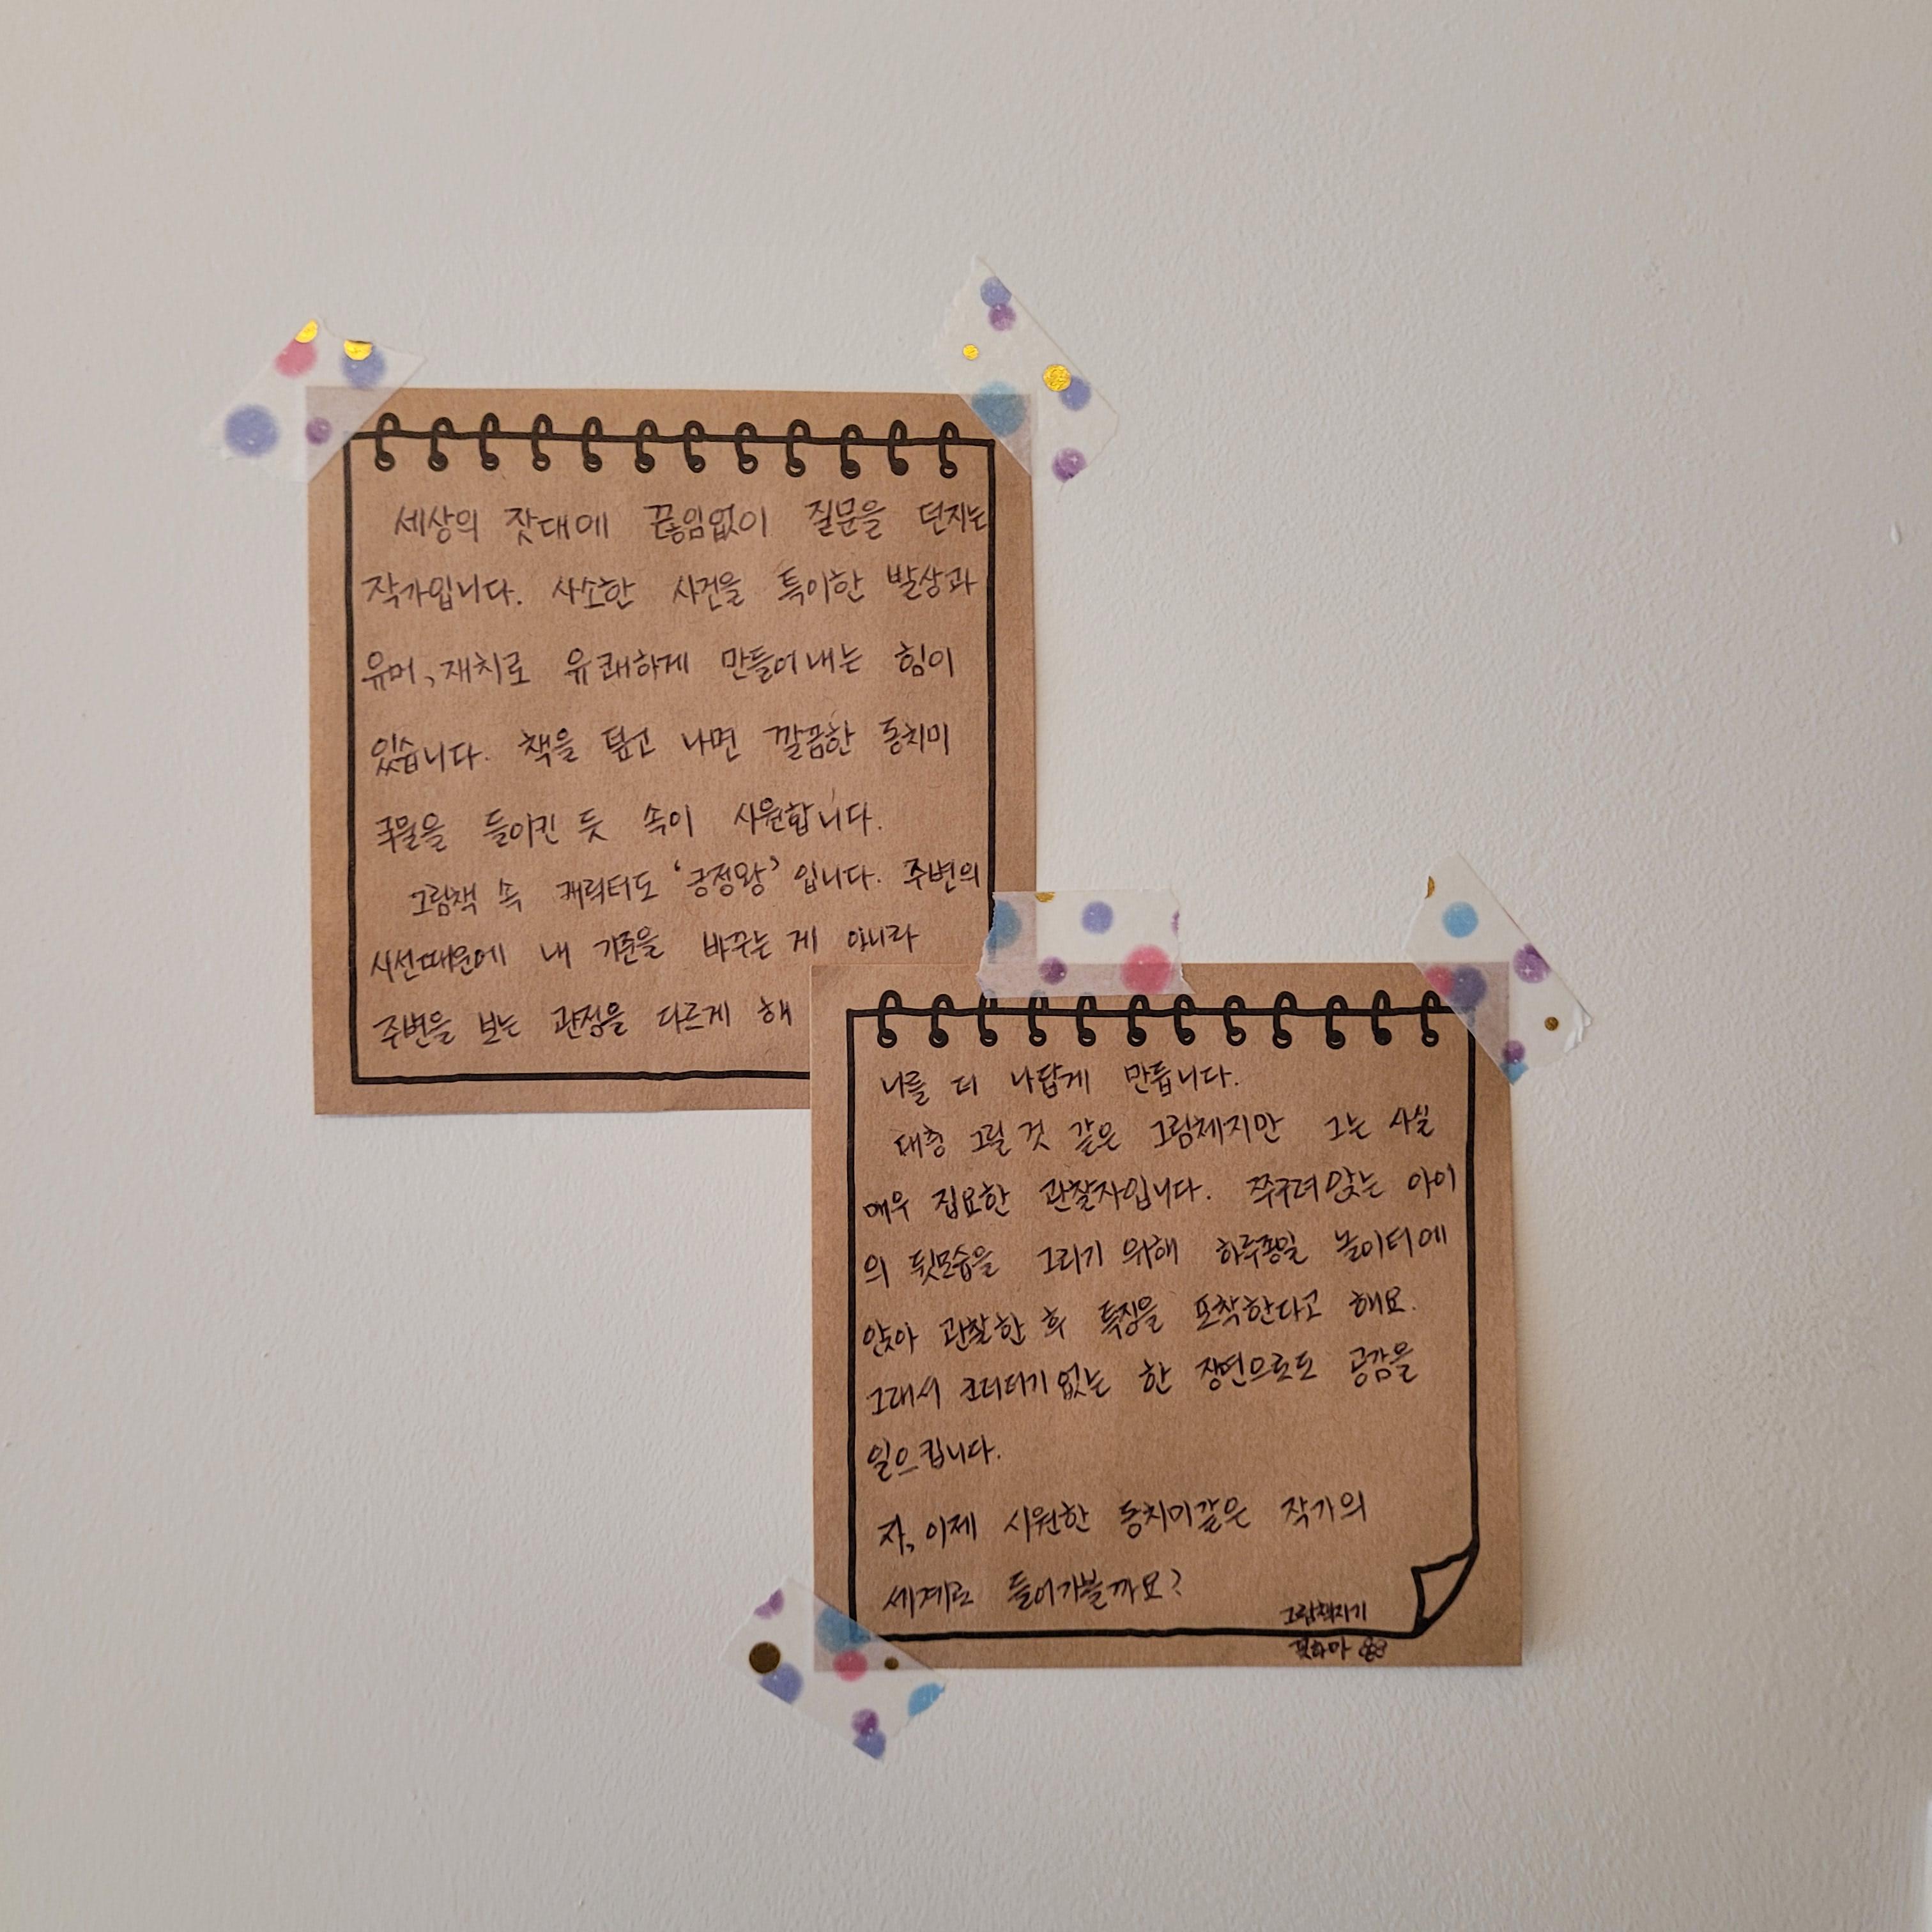 세상의 잣대에 끊임없이 질문을 던지는
작가입니다. 사소한 사건을 특이한 발상과
유머, 재치로 유쾌하게 만들어 내는 힘이
있습니다. 책을 덮고 나면 깔끔한 동치미
국물을 들이킨 듯 속이 시원합니다.
그림책 속 캐릭터도 '긍정왕' 입니다. 주변의
시선때문에 내 기준을 바꾸는 게 아니라
주변을 보는 관점을 다르게 해
나를 더 나답게 만듭니다.
대충 그릴 것 같은 그림체지만 그는 사실
매우 집요한 관찰자입니다. 쭈구려 앉는 아이
의 뒷모습을 그리기 위해 하루종일 놀이터에
앉아 관찰한 후 특징을 포착한다고 해요.
그래서 군더더기 없는 한 장면으로도 공감을
일으킵니다.
자, 이제 시원한 동치미같은 작가의
세계로 들어가볼까요?
그림책지기